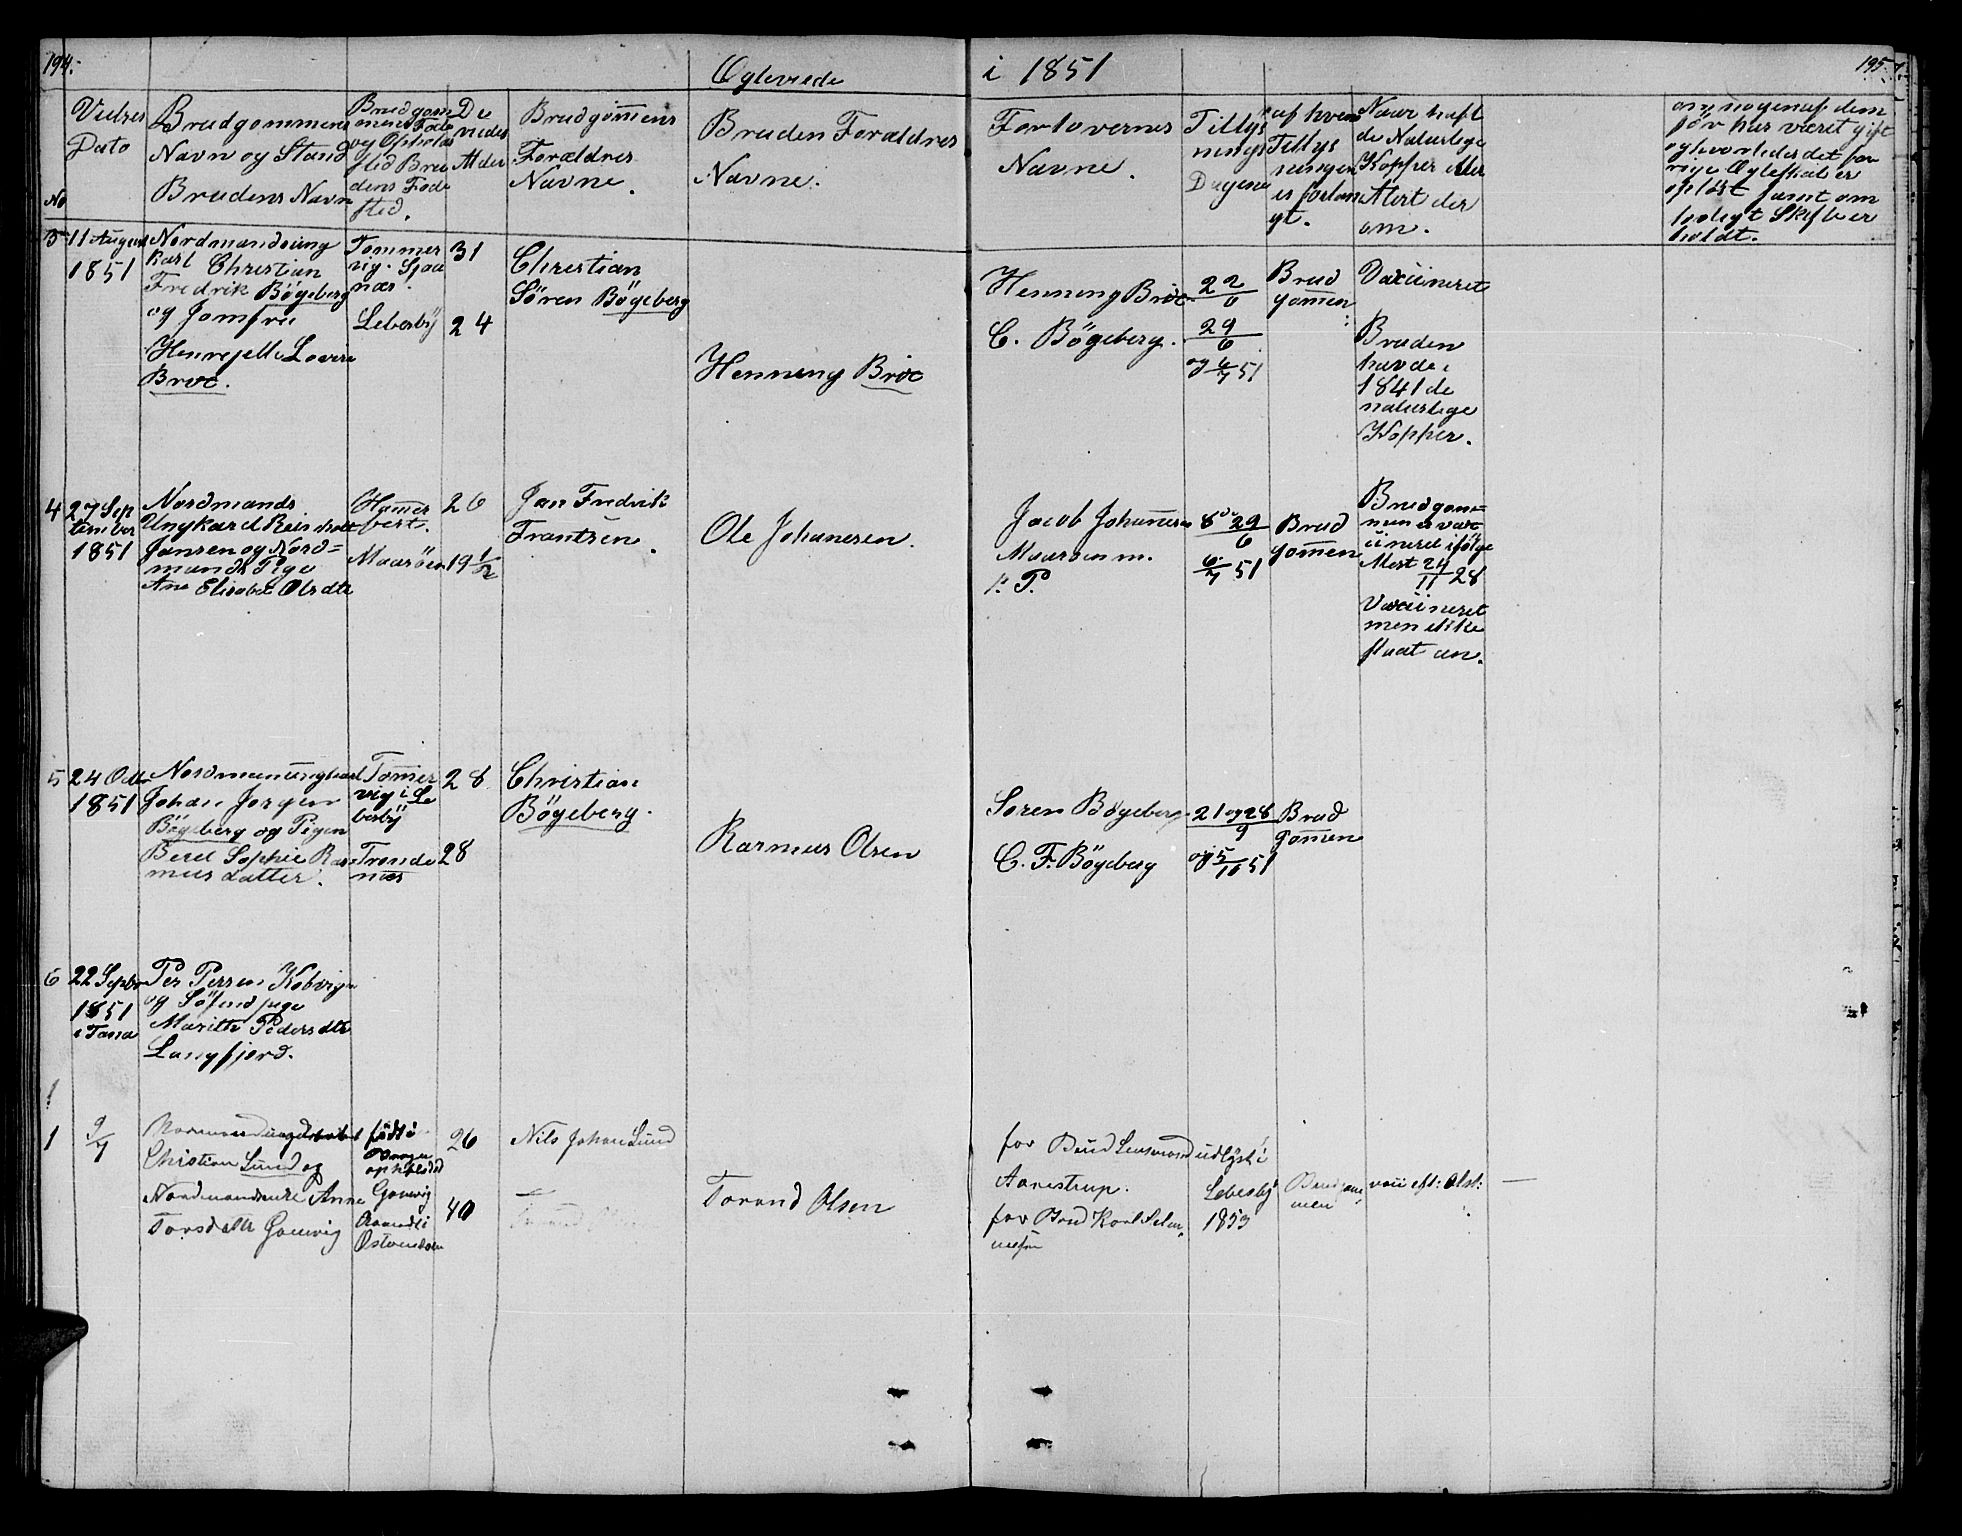 194.
Ægteviede
i 1851
195.
No
Vielses
Dato
Brudgommens
Navn og Stand
Brudens Navn
Brudgom
mens Føde
og Opholds
sted Bru
dens Føde
sted.
De
viedes
Alder
Brudgom̄ens
Forældres
Navne.
Bruden Forældres
Navne.
Forlovernes
Navne.
Tillys
nings
Dagene
af hvem
Tillys
ningen
er forlan
gt.
Naar haft
de Naturlige
Kopper eller
Attest der
om.
om nogen af dem
før har været gift
og hvorledes det for
rige Ægteskab er
opløst samt om
lovligt Skifte er
holdt.
11 August
1851
Nordmandsung
karl Christian
Fredrik Bögeberg
og Jomfru
Broc.
Tommer
vig.
Lebesby
31
24
Christian
Sören Bögeberg
Henning Broc
Henning Broc
C. Bögeberg.
22
6
29
6
og 6/7 51
Brud
gom̄en
Vacineret
Bruden
havde i
1841 de
naturlige
Kopper.
4
27 Sep
tember
1851
Nordmands
Ungkarl Reinholt
Jansen og Nord=
mands Pige
Ane Elisabet Olsdtr
Ham̄er
fest.
Maarøen
26
19 1/2
Jan Fredrik
Frantsen.
Ole Johanesen.
Jacob Johannesen
Maarøen m.
p. P.
29
6
6/7 51
Brud
gom̄en
Brudgom=
men er vac
cineret ifølge
Attest 24/11 28
Vaccineret
men ikke
slaat an.
5
24 Octb
1851
Nordmanungkarl
Johan Jørgen
Bögeberg og Pigen
Beret Sophie Ras
mus datter.
Tom̄er
vig i Le
besbÿ
Tronde
næs
28
28
Christian
Bögeberg.
Rasmus Olsen
Søren Bøgeberg
C. F. Bögeberg
21 og 28
9
og 5/10 51
Brud
gom̄en
6
22 Septbr
1851
i Tana
Per Persen Kobvign
og Söfind pige
Marithe Pedersdtr
Langfjord.
1
1
9/7
Christian Lund og
Anne
Torsdattr Gamvig
født i
Gamvig
26
40
Nils Johan Lund
Torand Olsen
for Brud Lensmand
Aarestrup.
for Brud Karl
udlyst i
Lebesby
1853
Brudgom
men
vac: eft: Atst:
—